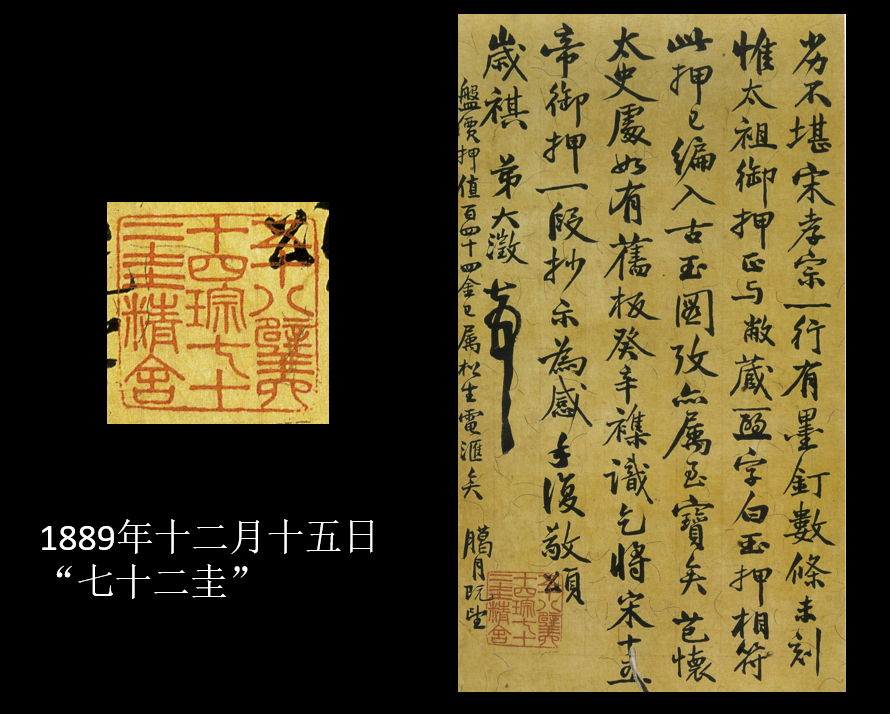 劣不堪宋孝宗一行有墨釘數條未刻
惟太祖御押正与敝藏字白玉押相符
此押已編入古玉圖攷亦属至寶矣芑懷
太史處如有舊板癸辛襍識乞將宋十五
帝御押一段抄示為感手復敬頌
歲祺 弟大澂
盤價押值百四十四金已属松生電滙矣 臘月既望
五十八璧六
十四琮七十
二圭精舍
五十八璧六
十四琮七十
二圭精舍
1889年十二月十五日
“七十二圭”